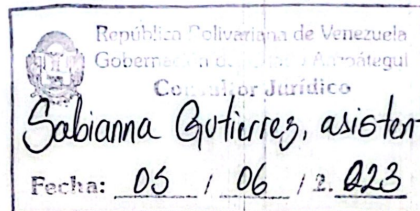 República Bolivariana de Venezuela
Gobernación de Anzoátegui
Consultor Jurídico
Sabianna Gutierrez, asisten
Fecha: 05 / 06 / 2.023